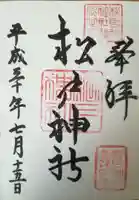 奉拝
松戸神社
平成三十年七月十五日